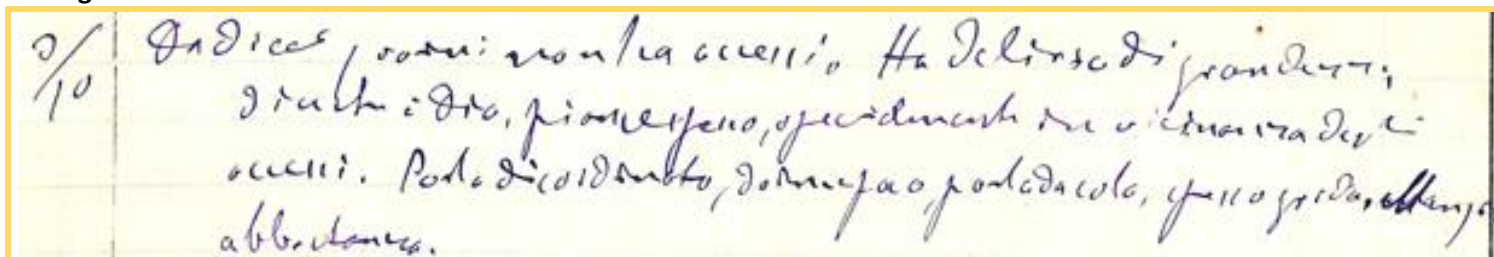 3/10 Da dieci giorni non ha accessi. Ha delirio di grandezza;
dice che è Dio, piange spesso, specialmente in vicinanza degli
accessi. Parla disordinato, dorme poco, parla da solo, spesso grida, mangia
abbastanza.